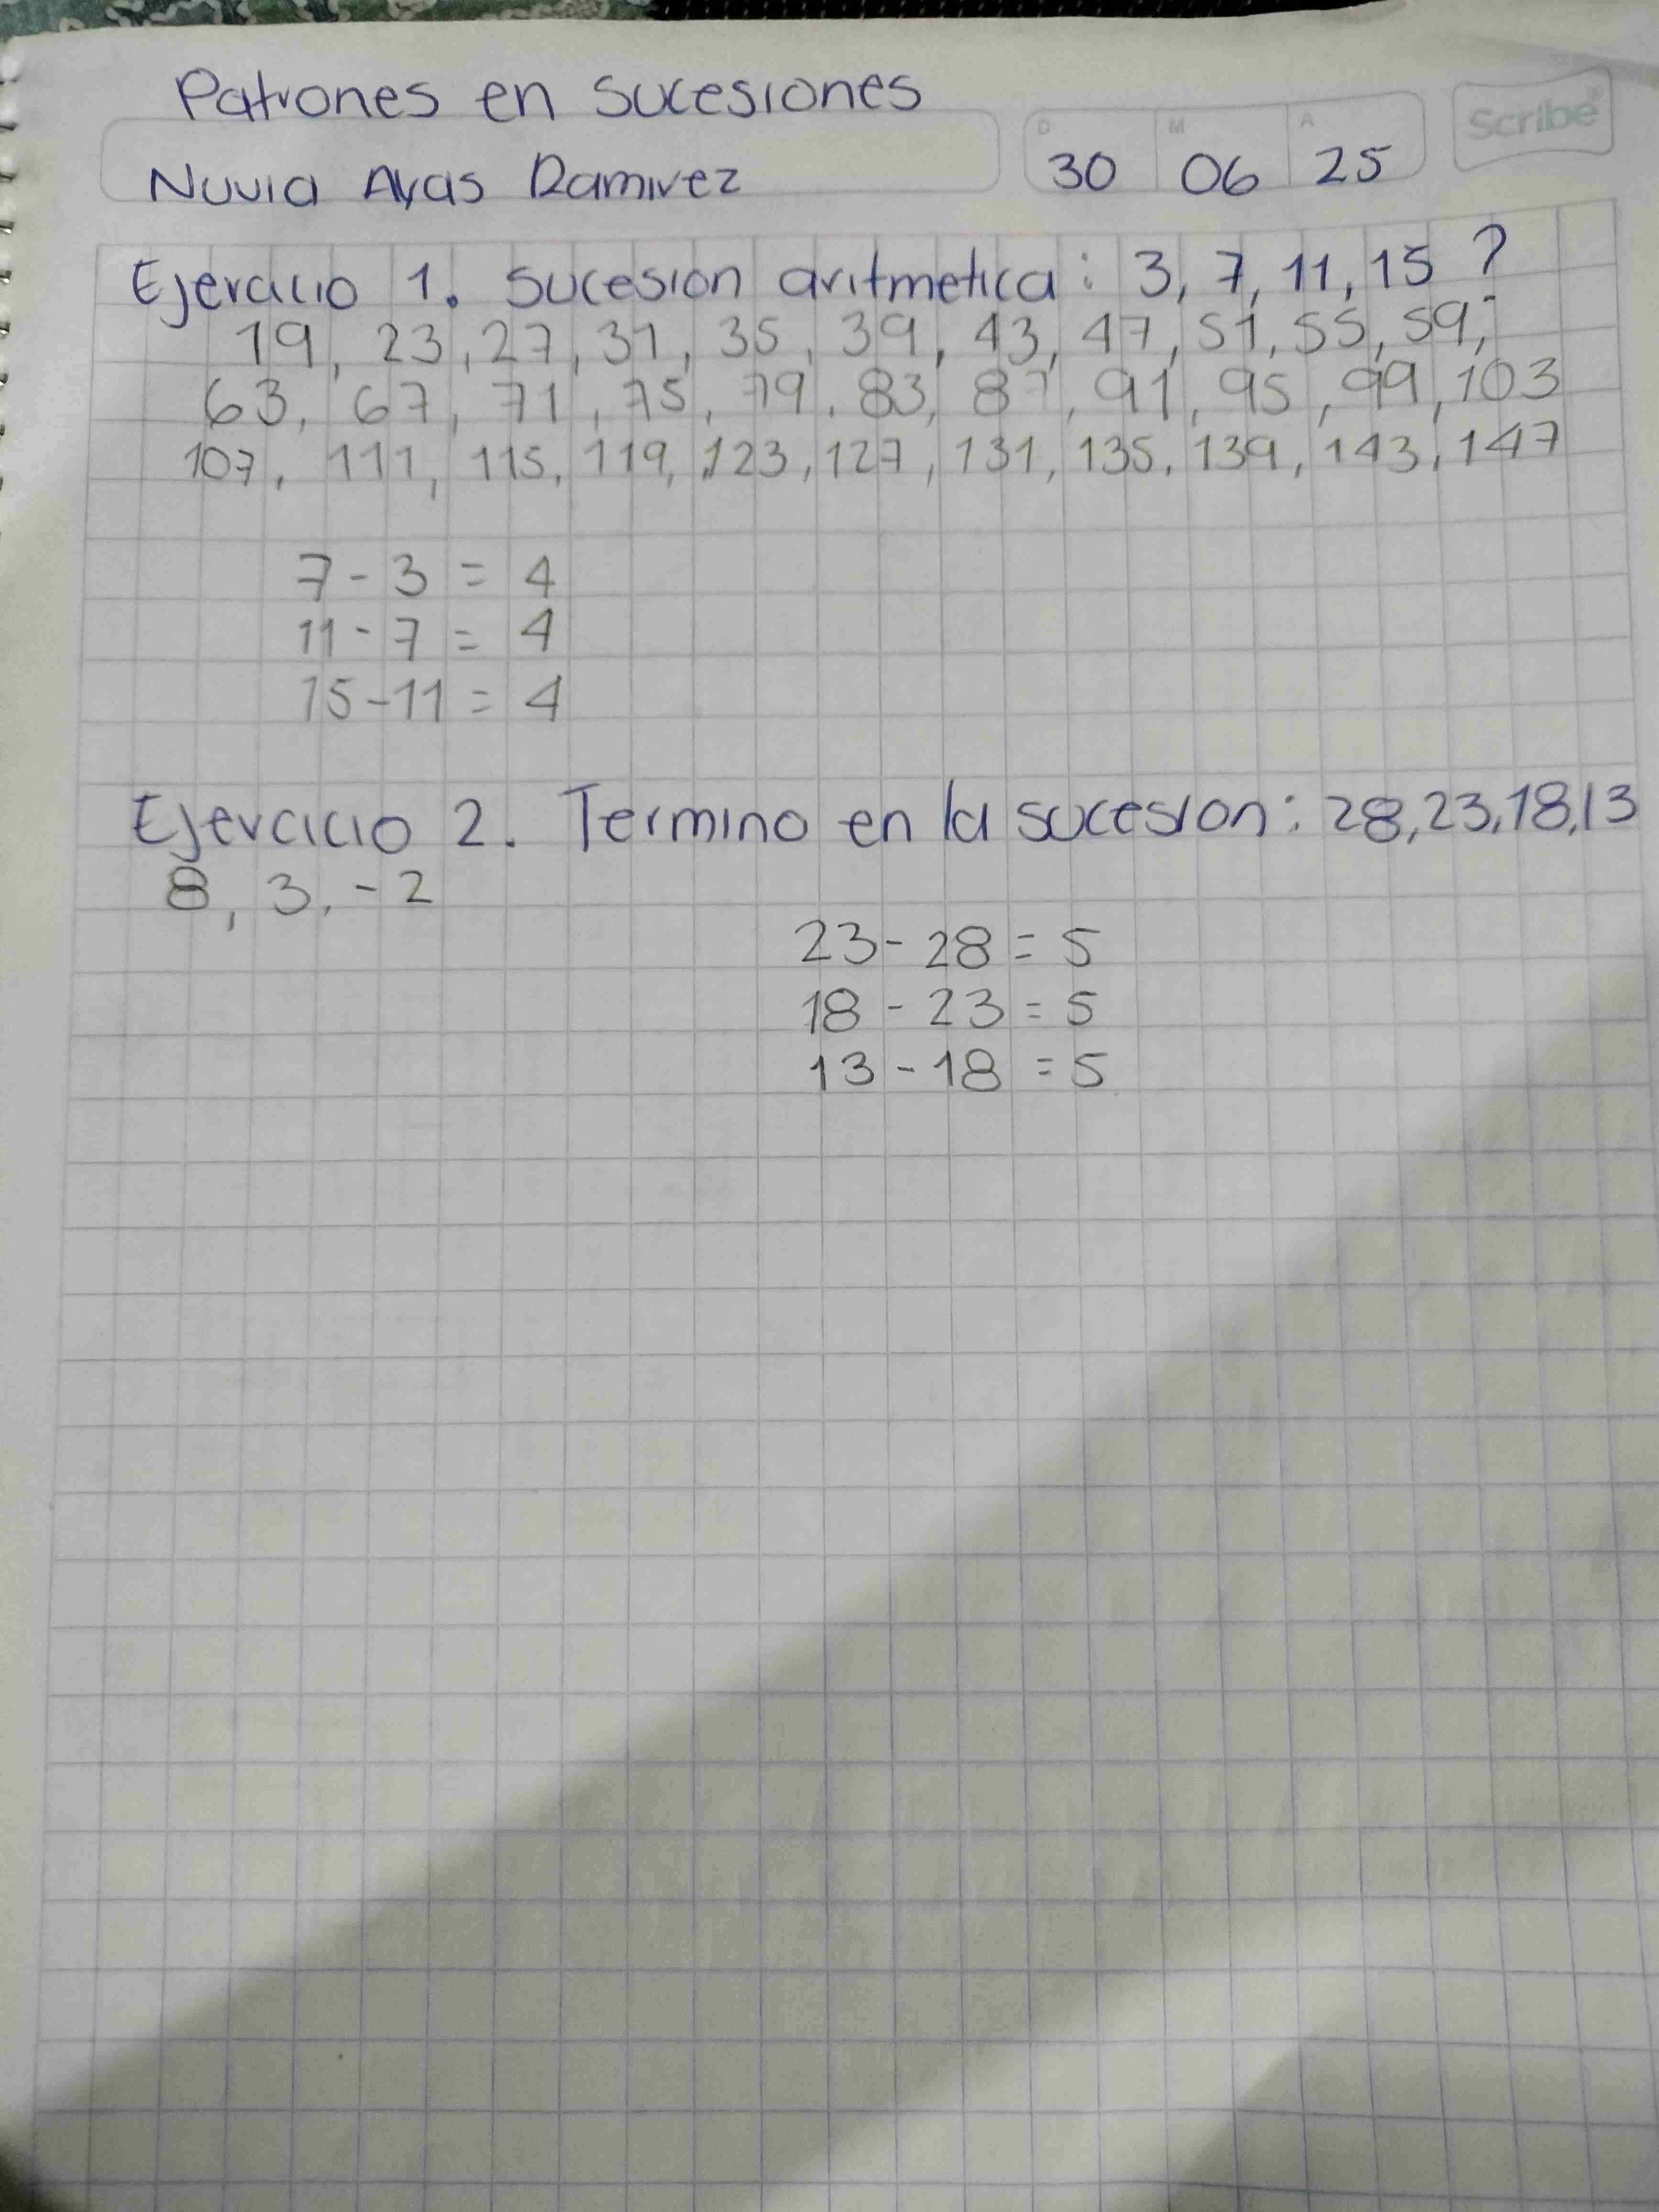 Patrones en sucesiones
D M A
Scribe
Nuvia Ayas Ramirez
30 06 25
Ejercicio 1. Sucesion aritmetica: 3, 7, 11, 15 ?
19, 23, 27, 31, 35, 39, 43, 47, 51, 55, 59,
63, 67, 71, 75, 79, 83, 87, 91, 95, 99, 103
107, 111, 115, 119, 123, 127, 131, 135, 139, 143, 147
7 - 3 = 4
11 - 7 = 4
15 - 11 = 4
Ejercicio 2. Termino en la sucesion: 28, 23, 18, 13
8, 3, -2
23 - 28 = 5
18 - 23 = 5
13 - 18 = 5